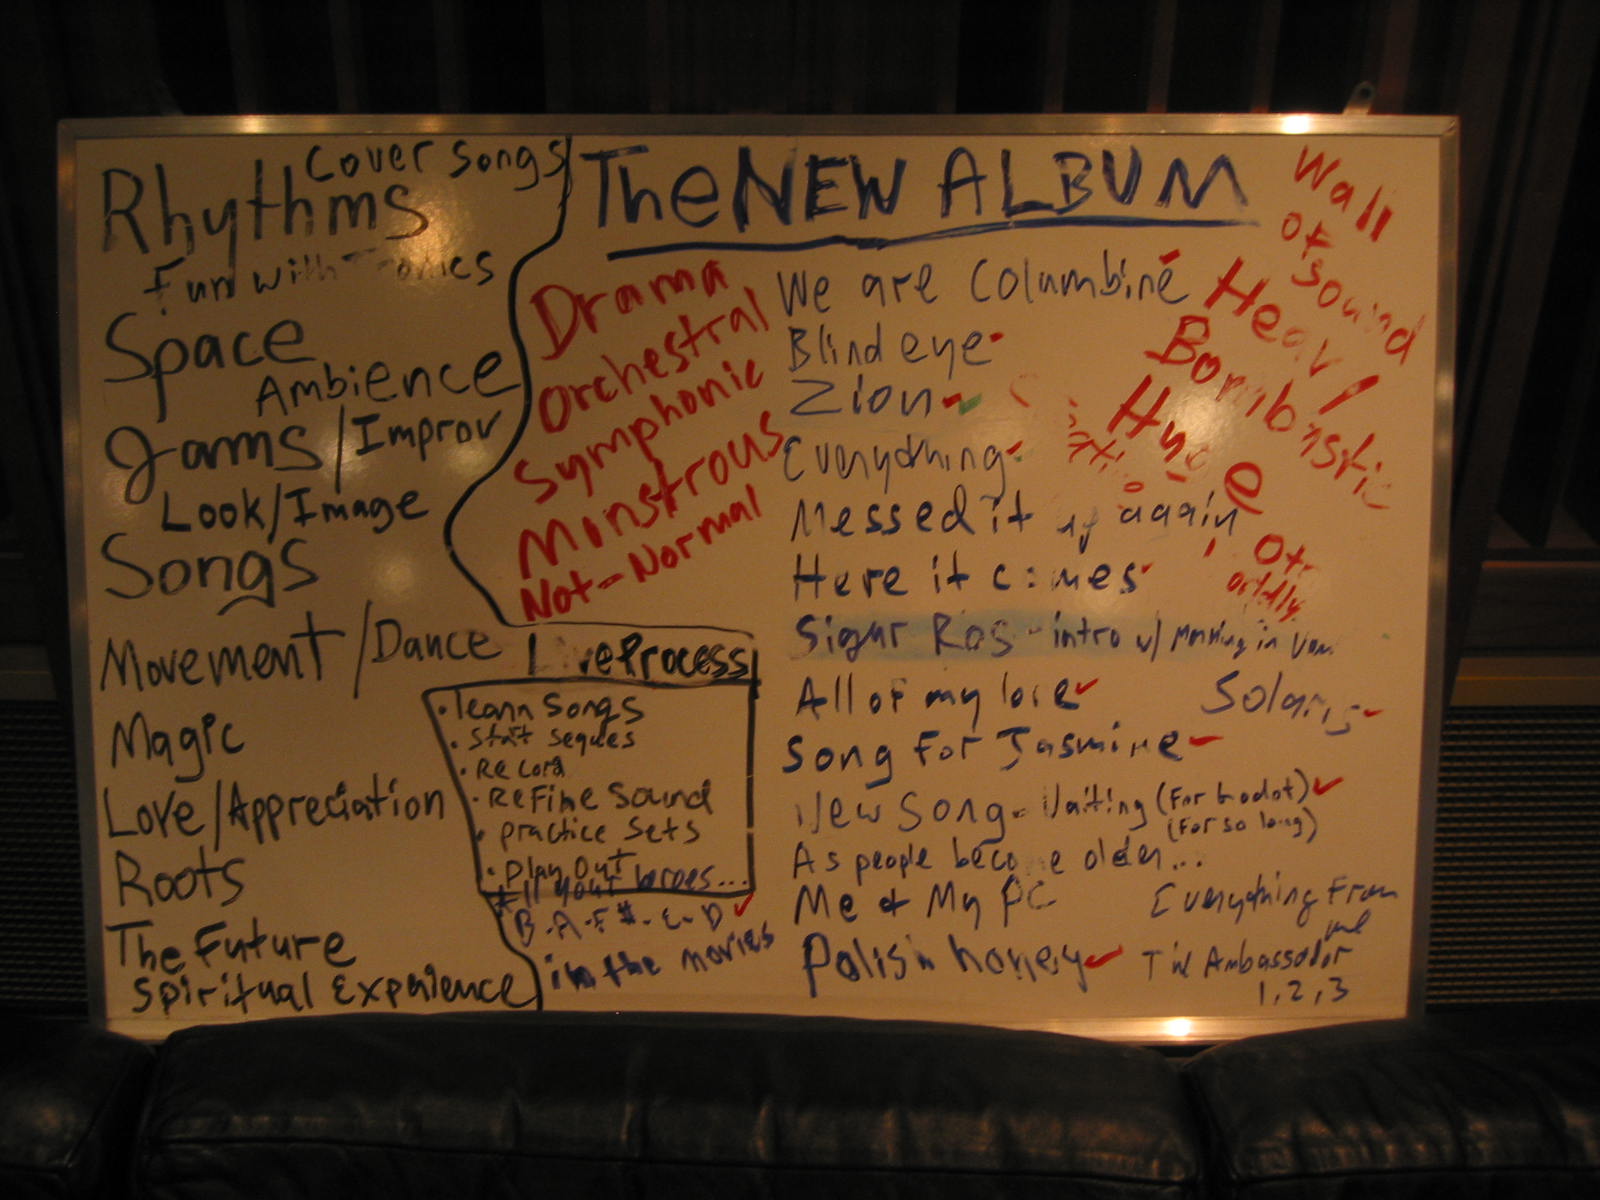 Cover songs
Rhythms
Fun with
Space
Ambience
Jams/Improv
Look/Image
Songs
Movement/Dance
Magic
Love/Appreciation
Roots
The Future
Spiritual Experience
The NEW ALBUM
Drama
Orchestral
Symphonic
Monstrous
Not-Normal
Live Process
• learn songs
• start segues
• Record
• Refine Sound
• practice sets
• Play Out
All your heroes...
B-A-F#-E-D
in the movies
We are Columbine
Blind eye
Zion
Everything
Messed it up again
Here it comes
Sigur Ros - intro w/
All of my love
Solaris
Song For Jasmine
New Song - Waiting (For Godot)
(For so long)
As people become older...
Me & My PC
Everything From me
Polish honey
Tin Ambassador
1,2,3
Wall
of sound
Heavy
Bombastic
Huge